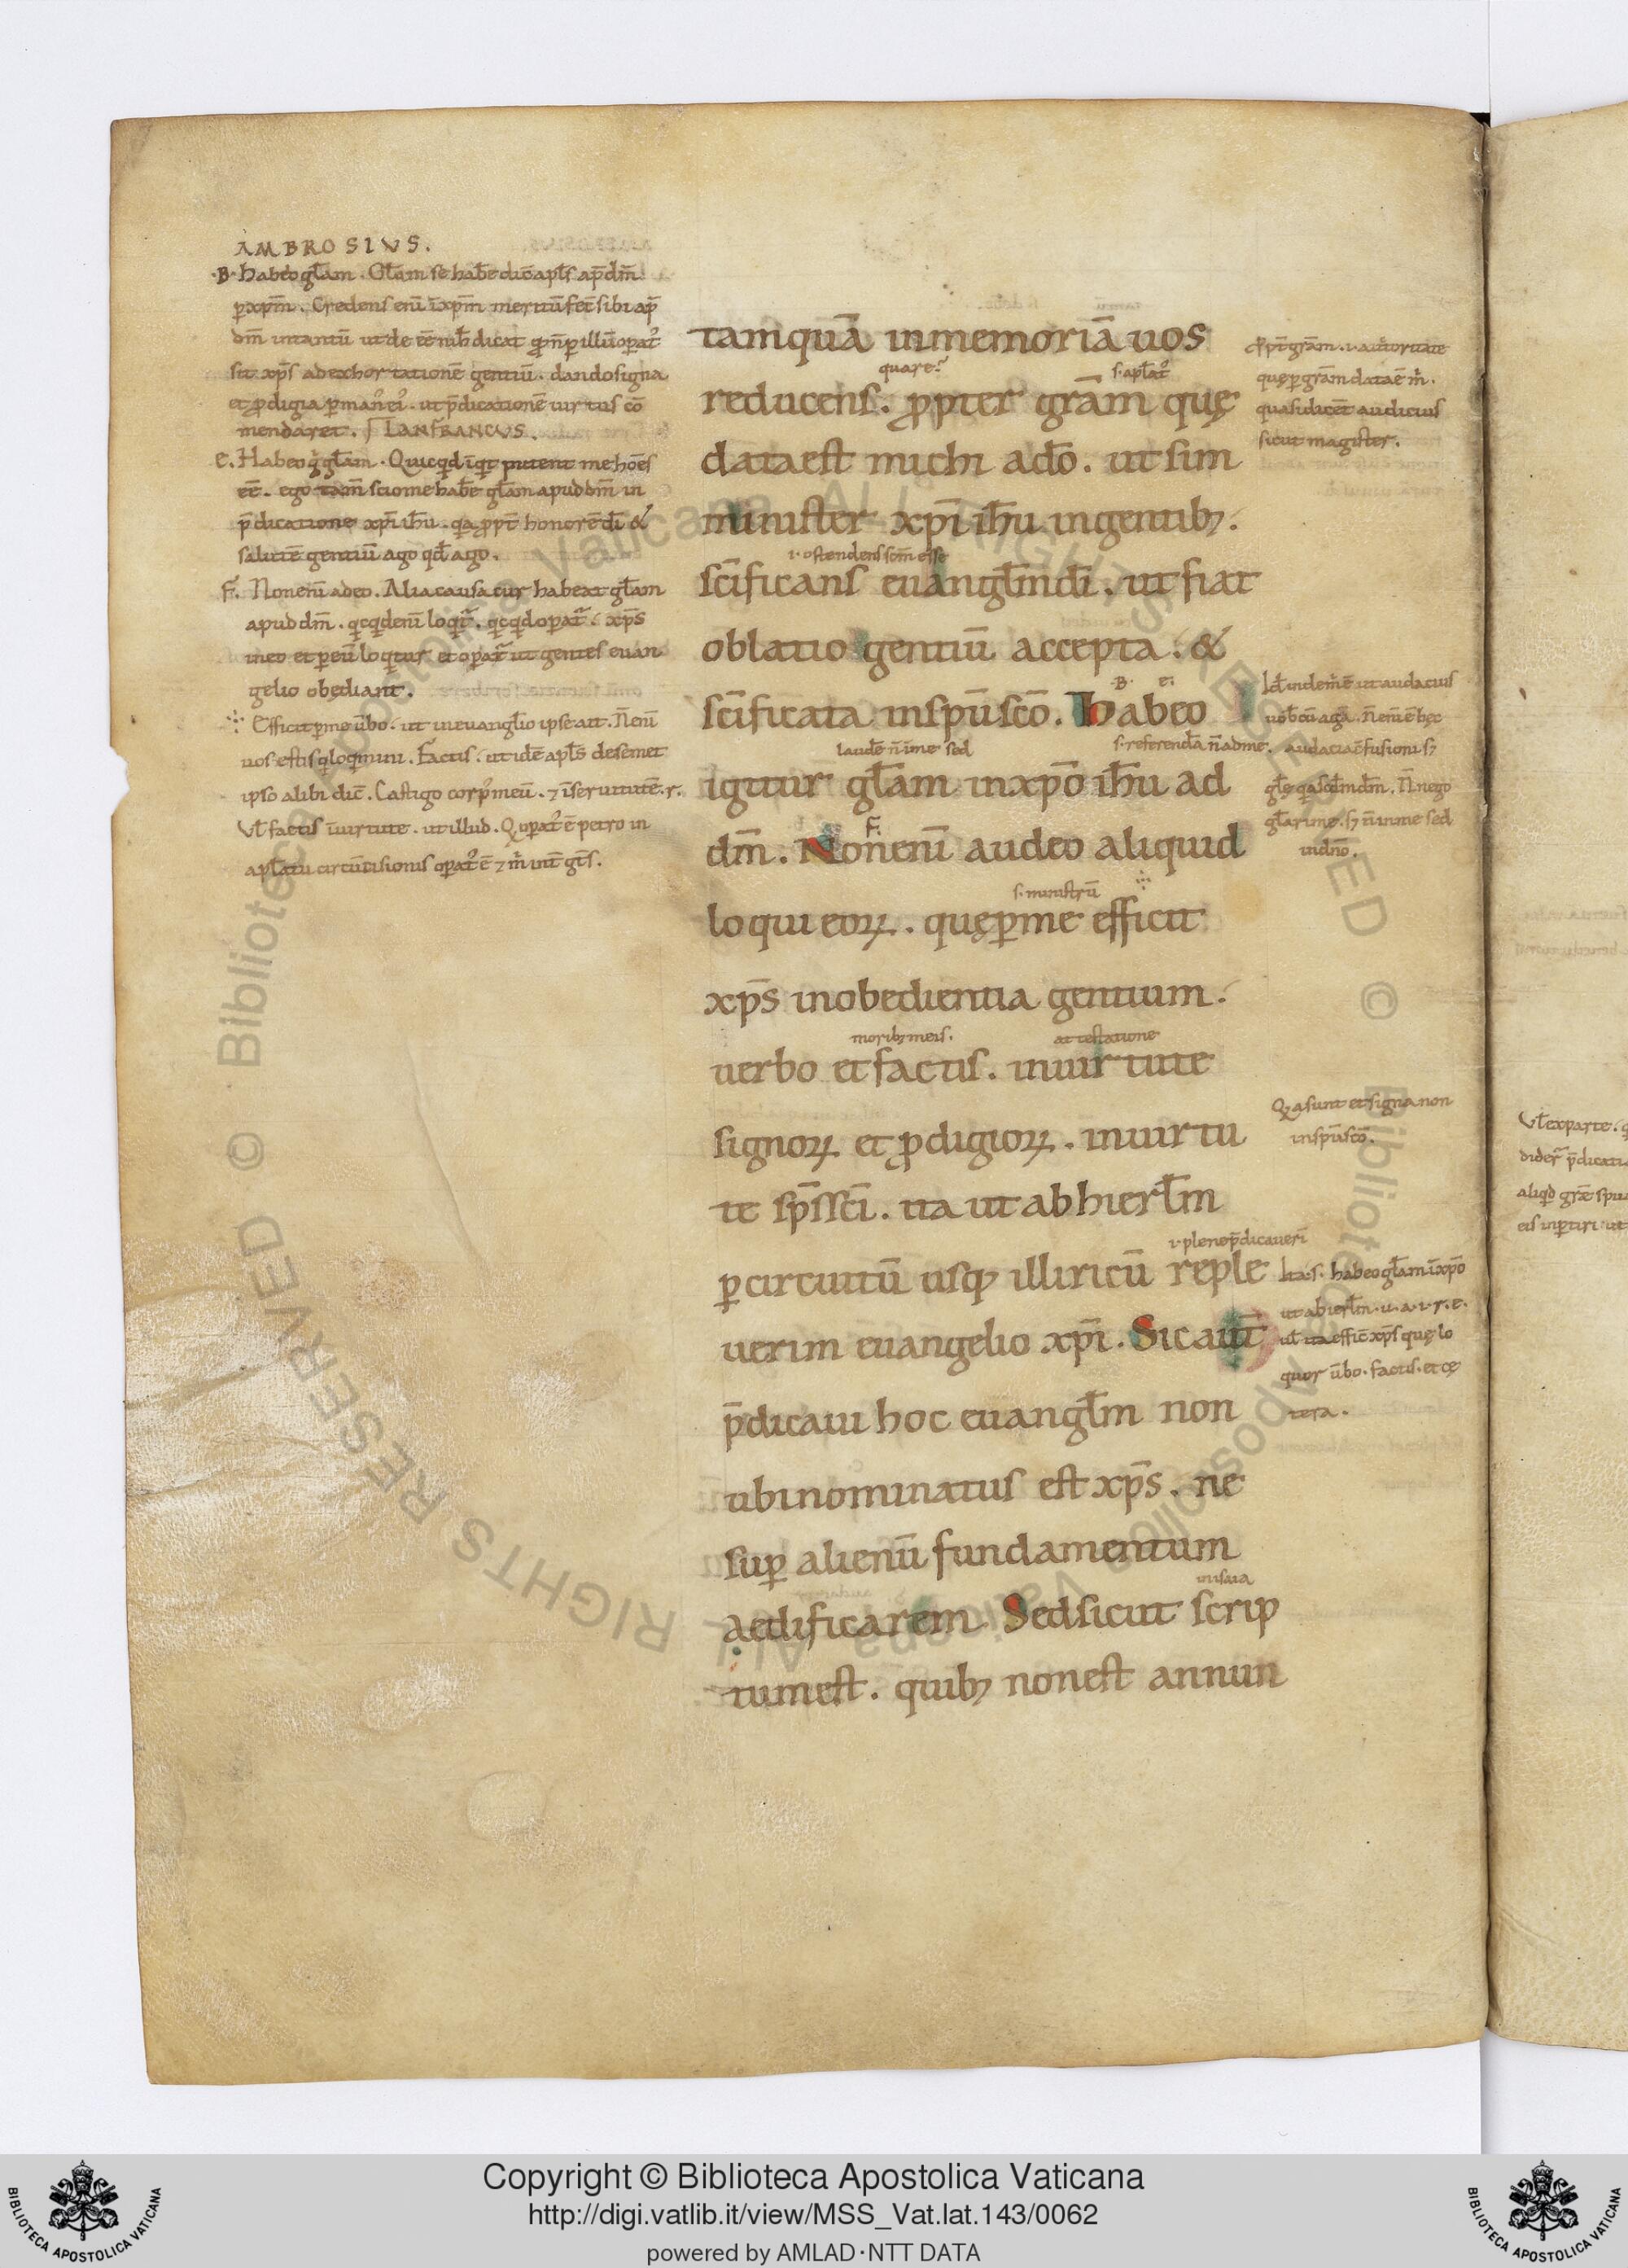 AMBROSIVS.
·B· Habeo gl̄am. Gl̄am se hab̄e dic̄ apl̄s ap̄ dm̄
p̱ xp̄m. Credens enī īxp̄m meritū fec̄ sibi ap̄
dm̄ intantū ut de ēē nih̄ dicat
sit xp̄s ad exhortationē gentiū. dando signa
et ꝓdigia ꝑ man᷒ ei᷒. ut p̄dicationē uirtus cō
mendaret. LANFRANCVS.
e. Habeo g̊ gl̄am. Quicqd īqt putent me hōes
ēē. ego tam̄ scio me hab̄e gl̄am apud dm̄ in
p̄dicatione xp̄i ih̄u. qa ꝓpt̄ honorē dī &
salutē gentiū ago qd̄ ago.
F. Non enī adeo. Alia causa cur habeat gl̄am
apud dm̄. qcqd enī loqt᷑. qcqd opat᷑. xp̄s
in eo et ꝑ eū loqtur et opat᷑ ut gentes euan
gelio obediant.
Efficit ꝑ me ūbo. ut in euangl̄io ipse ait. N̄ enī
uos estis q̣ loqmini. Factis. ut idē apl̄s de semet
ipso alibi dic̄. Castigo corp᷒ meū. ⁊ ī seruitutē. r.
Vl̄ factis ī uirtute. ut illud. Q̣ opat᷒ ē petro in
apl̄atū circūcisionis opat᷒ ē ⁊ m̊ int̄ gt̄s.
tamquā inmemoriā uos
quare? s. apl̄at᷒
reducens. ꝓpter grām quę
dataest michi adō. ut sim
minister xp̄i ih̄u ingentib;.
i. ostendens scm̄ esse
scīficans euangl̄m dī. ut fiat
oblatio gentiū accepta. &
·B· e.
scīficata inspū scō. Habeo
laudē n̄ ime sed s. referenda n̄ adme.
igitur gl̄am inxp̄o ih̄u ad
F.
dm̄. Nonenī audeo aliquid
s. ministrū
loqui eoꝝ. quęꝑme efficit
xp̄s inobedientia gentium.
morib; meis. attestatione
uerbo et factis. inuirtute
signoꝝ et ꝓdigioꝝ. inuirtu
te sp̄s scī. ita ut ab hierl̄m
i. plene p̄dicauerī
ꝑcircuitū usq; illiricū reple
uerim euangelio xp̄i. Sicaut̄
p̄dicaui hoc euangl̄m non
ubinominatus est xp̄s. ne
suꝑ alienū fundamentum
inisaia
aedificarem. Sedsicut scrip
tumest. quib; nonest annun
ꝓpt̄ grām. i. auctoritate
quę ꝑ grām data ē m̊.
quasi dicēt audicius
sicut magister.
Id̄ inde m̊ ē ut audacius
uob̄cū agā. N̄ enī ē hęc
audacia ēfusionis ⁊
N̄ n̄ ego
gl̄arime. ⁊ n̄ inme sed
indn̄o.
Q̣a sunt et signa non
inspū scō.
Ita. s. habeo gl̄am ixp̄o
ut abierl̄m. u. a. i. r. e.
ul̄ ita effic̄ xp̄s quę lo
quor ūbo. factis. et cę
tera.
Vl̄ exparte.
dider̄ p̄dicati
aliqd̄ grae spu
eis inꝑtiri ut
Copyright © Biblioteca Apostolica Vaticana
http://digi.vatlib.it/view/MSS_Vat.lat.143/0062
powered by AMLAD·NTT DATA
BIBLIOTECA APOSTOLICA VATICANA
BIBLIOTECA APOSTOLICA VATICANA
© Biblioteca Apostolica Vaticana ALL RIGHTS RESERVED
© Biblioteca Apostolica Vaticana ALL RIGHTS RESERVED